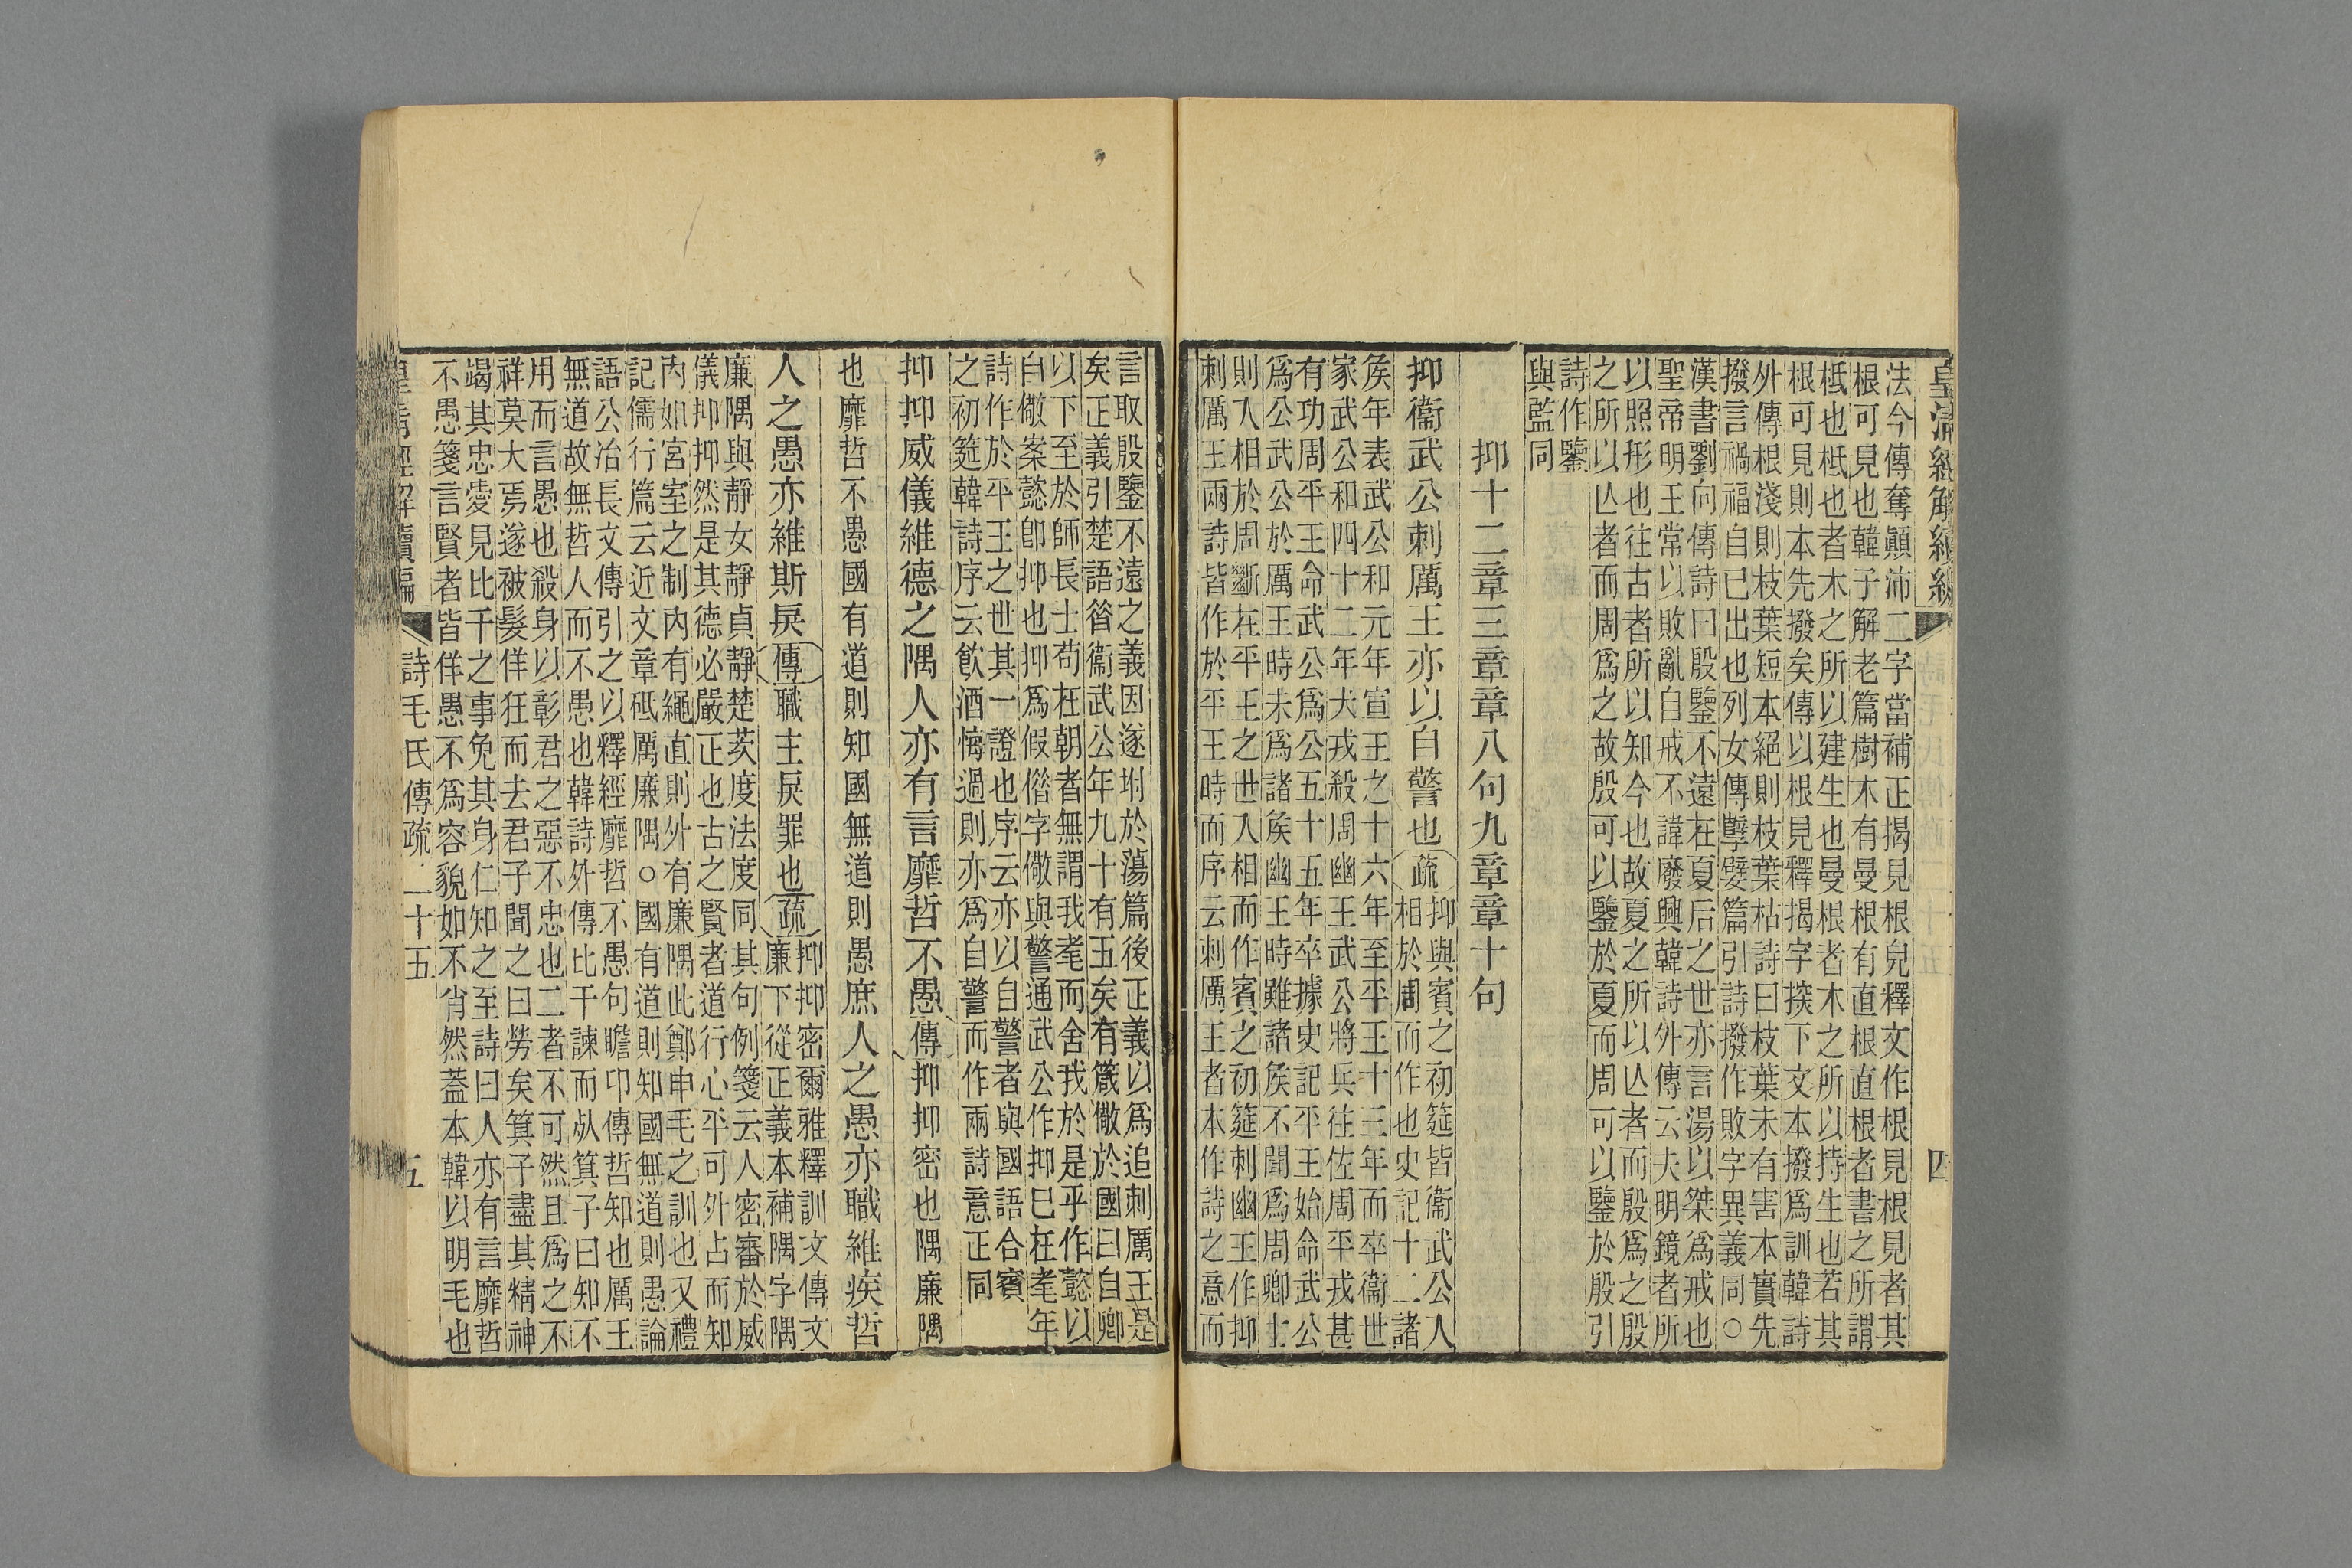 皇清經解續編
四
法今傳奪顚沛二字當補正揭見根皃釋文作根見根見者其
根可見也韓子解老篇樹木有曼根有直根直根者書之所謂
柢也柢也者木之所以建生也曼根者木之所以持生也若其
根可見則本先撥矣傳以根見釋揭字揆下文本撥爲訓韓詩
外傳根淺則枝葉短本絕則枝葉枯詩曰枝葉未有害本實先
撥言禍福自已出也列女傳孼嬖篇引詩撥作敗字異義同○
漢書劉向傳詩曰殷鑒不遠在夏后之世亦言湯以桀爲戒也
聖帝明王常以敗亂自戒不諱廢興韓詩外傳云夫明鏡者所
以照形也往古者所以知今也故夏之所以亾者而殷爲之殷
之所以亾者而周爲之故殷可以鑒於夏而周可以鑒於殷引
詩作鑒
與監同
抑十二章三章章八句九章章十句
抑衞武公刺厲王亦以自警也疏抑與賓之初筵皆衞武公人
相於周而作也史記十二諸
矦年表武公和元年宣王之十六年至平王十三年而卒衞世
家武公和四十二年犬戎殺周幽王武公將兵往佐周平戎甚
有功周平王命武公爲公五十五年卒據史記平王始命武公
爲公武公於厲王時未爲諸矦幽王時雖諸矦不聞爲周卿士
則入相於周斷在平王之世入相而作賓之初筵刺幽王作抑
刺厲王兩詩皆作於平王時而序云刺厲王者本作詩之意而
言取殷鑒不遠之義因遂坿於蕩篇後正義以爲追刺厲王是
矣正義引楚語昝衞武公年九十有五矣有箴儆於國曰自卿
以下至於師長士苟在朝者無謂我耄而舍我於是乎作懿以
自儆案懿卽抑也抑爲假偺字儆與警通武公作抑巳在耄年
詩作於平王之世其一證也序云亦以自警者與國語合賓
之初筵韓詩序云飮酒悔過則亦爲自警而作兩詩意正同
抑抑威儀維德之隅人亦有言靡哲不愚傳抑抑密也隅廉隅
也靡哲不愚國有道則知國無道則愚庶人之愚亦職維疾哲
人之愚亦維斯戾傳職主戾罪也疏抑抑密爾雅釋訓文傳文
廉下從正義本補隅字隅
廉隅與靜女靜貞靜楚茨度法度同其句例箋云人密審於威
儀抑抑然是其德必嚴正也古之賢者道行心平可外占而知
內如宮室之制內有繩直則外有廉隅此鄭申毛之訓也又禮
記儒行篇云近文章砥厲廉隅○國有道則知國無道則愚論
語公冶長文傳引之以釋經靡哲不愚句瞻卬傳哲知也厲王
無道故無哲人而不愚也韓詩外傳比干諫而㱙箕子曰知不
用而言愚也殺身以彰君之惡不忠也二者不可然且爲之不
祥莫大焉遂被髮佯狂而去君子聞之曰勞矣箕子盡其精神
竭其忠愛見比干之事免其身仁知之至詩曰人亦有言靡哲
不愚箋言賢者皆佯愚不爲容貌如不肖然蓋本韓以明毛也
皇清經解續編 詩毛氏傳疏二十五
五